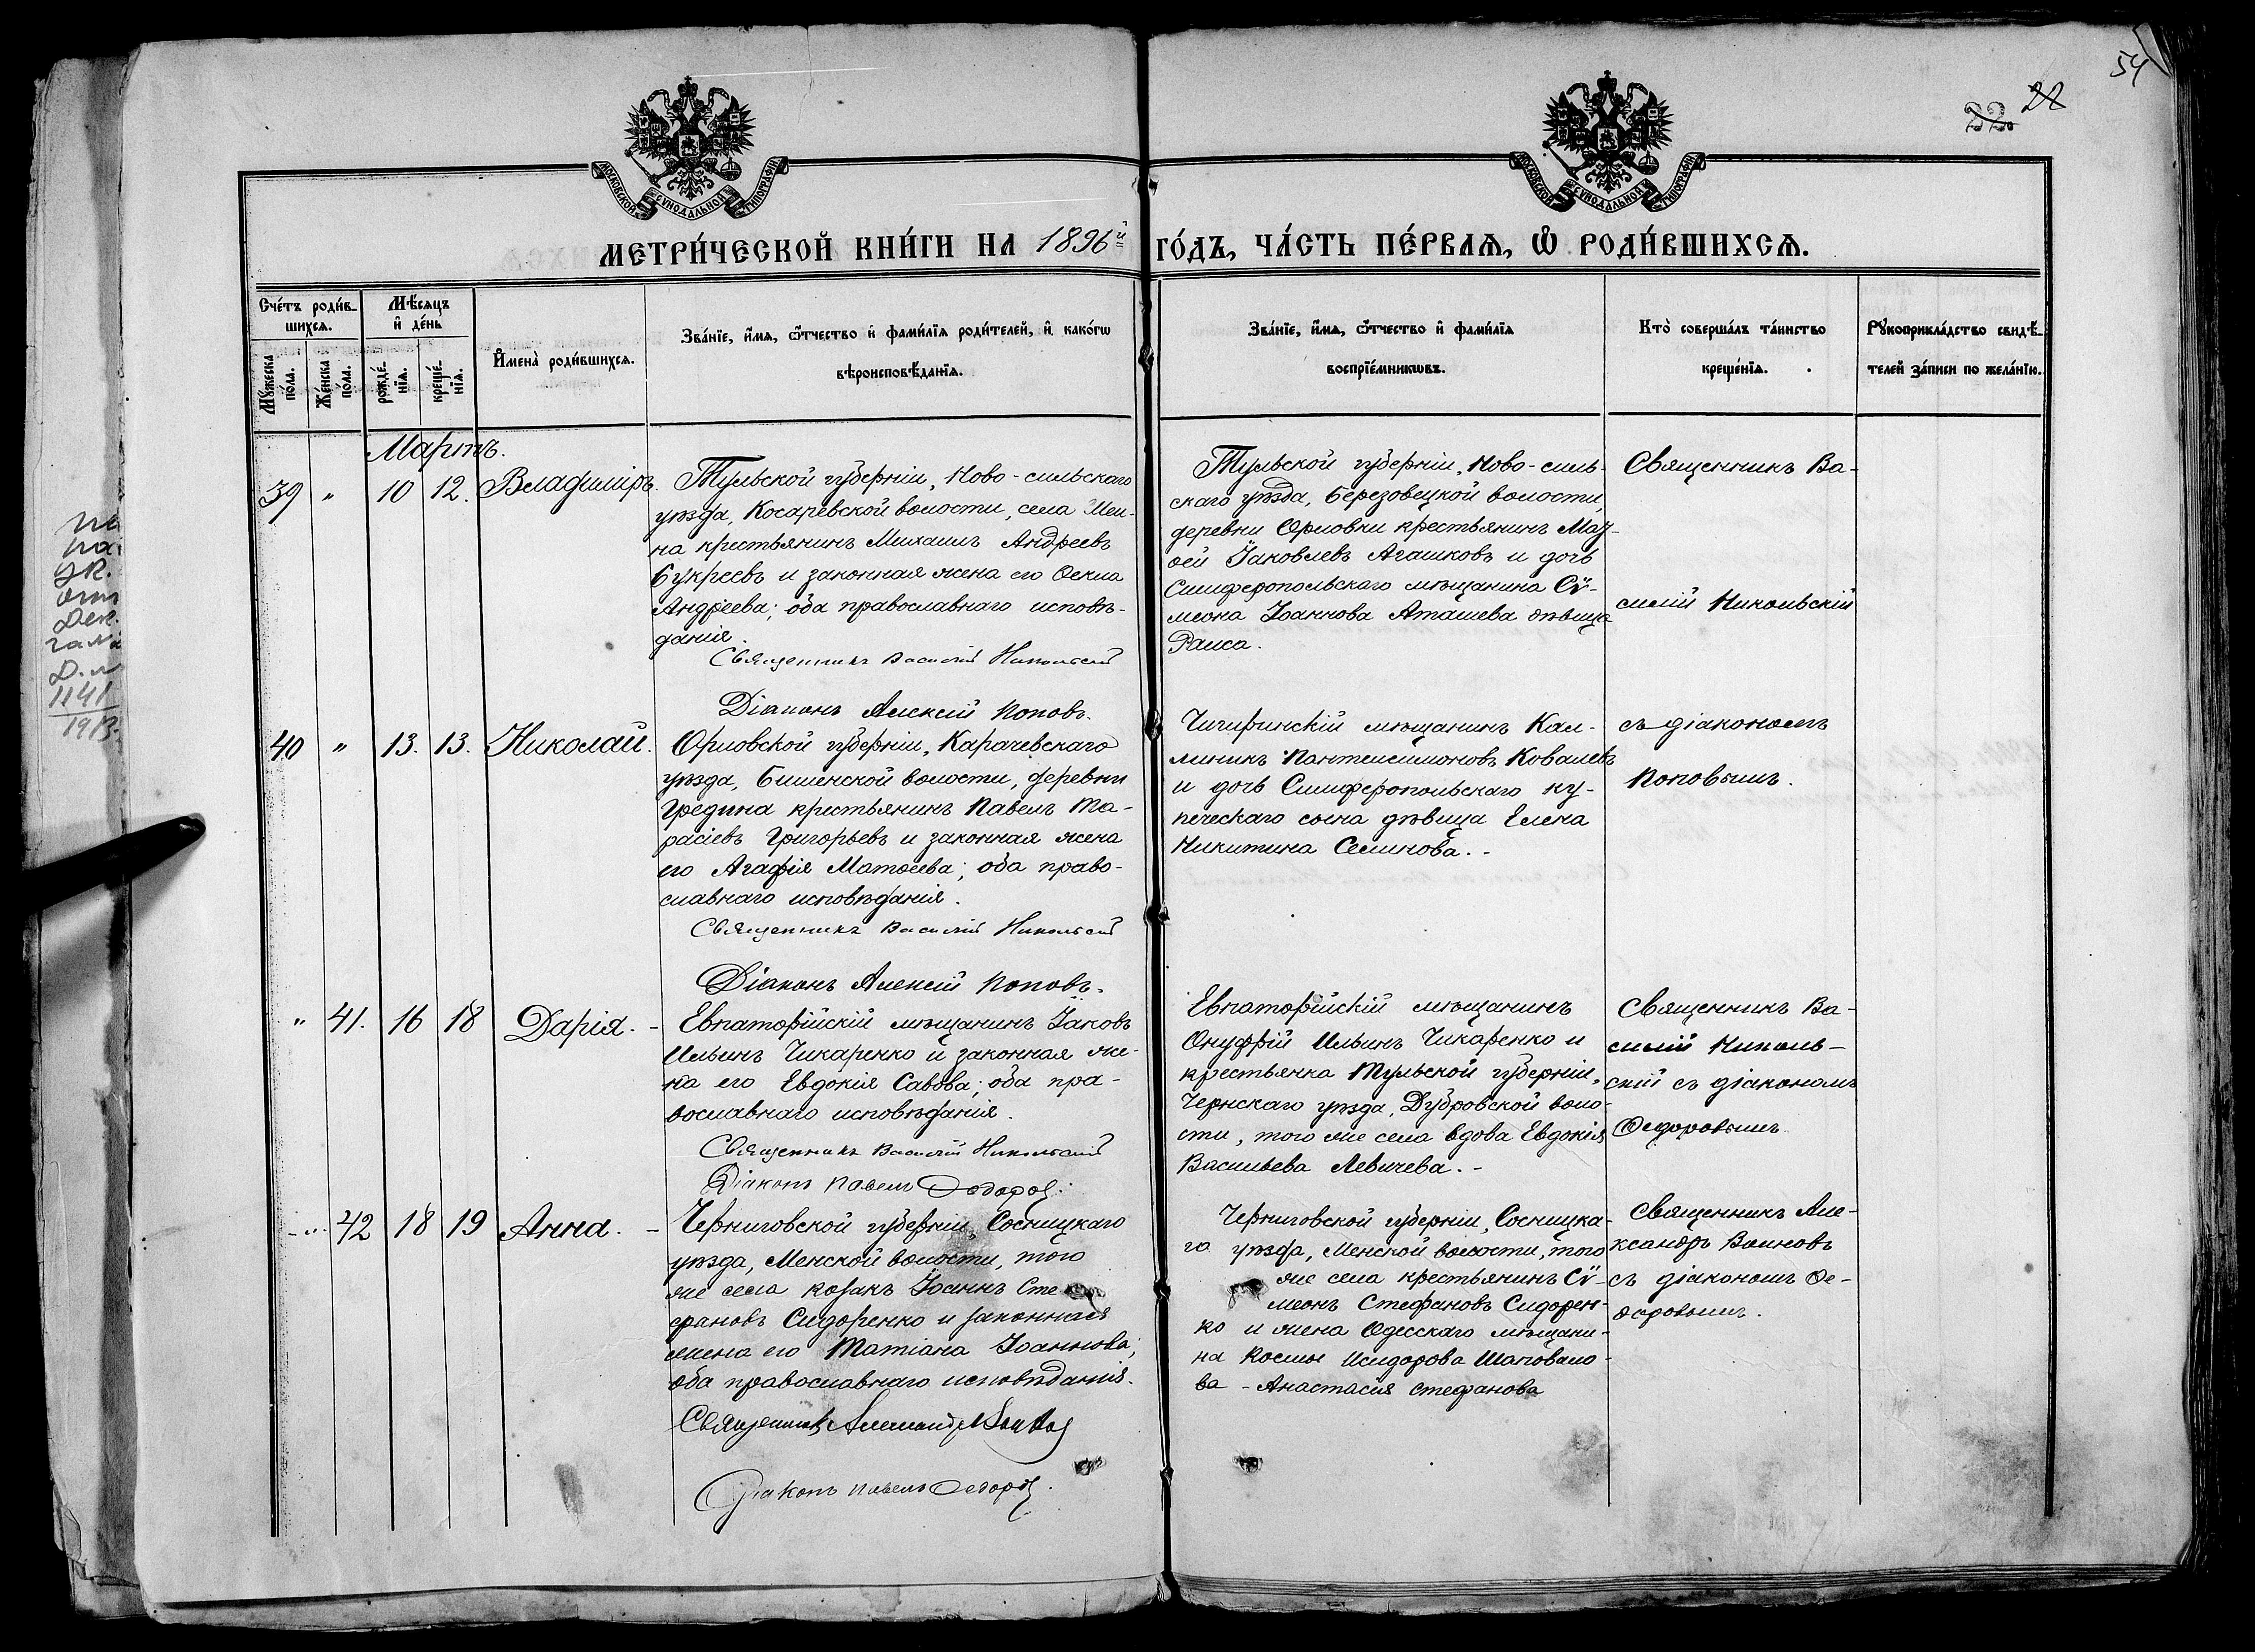 54
22. 22
МОСКОВСКОЙ СУНОДАЛЬНОЙ ТИПОГРАФІИ
МОСКОВСКОЙ СУНОДАЛЬНОЙ ТИПОГРАФІИ
МЕТРИ́ЧЕСКОЙ КНИ́ГИ НА 1896й ГО́ДЪ, ЧА́СТЬ ПЕ́РВАѦ, Ѽ РОДИ́ВШИХСѦ.
Сче́тъ роди́в-
шихсѧ.
Мꙋ́жеска по́ла.
Же́нска по́ла.
Мѣ́сѧцъ
и҆ де́нь
рожде́нїѧ.
креще́нїѧ.
И҆мена̀ роди́вшихсѧ.
Зва́нїе, и҆́мѧ, ѻ҆́тчество и҆ фами́лїѧ роди́телей, и҆ како́гѡ
вѣроисповѣ́данїѧ.
Зва́нїе, и҆́мѧ, ѻ҆́тчество и҆ фами́лїѧ
воспрїе́мникѡвъ.
Кто̀ соверша́лъ та́инство
креще́нїѧ.
Рꙋкоприкла́дство свидѣ́-
телей за́писи по жела́нїю.
Мартъ.
39 " 10 12. Владиміръ.
Тульской губерніи, Ново-сильскаго
уѣзда, Косаревской волости, села Шеи-
на крестьянинъ Михаилъ Андреевъ
Букреевъ и законная жена его Ѳекла
Андреева; оба православнаго исповѣ-
данія.
Священникъ Василій Никольскій
Діаконъ Алексій Поповъ.
Тульской губерніи, Ново-силь-
скаго уѣзда, Березовецкой волости,
деревни Орловки крестьянинъ Мат-
ѳей Іаковлевъ Агашковъ и дочь
Симферопольскаго мѣщанина Сѵ-
меона Іоаннова Аташева дѣвица
Раиса.
Священникъ Ва-
силій Никольскій
съ діакономъ
Поповымъ.
40 " 13. 13. Николай.
Орловской губерніи, Карачевскаго
уѣзда, Бишенской волости, деревни
Гредина крестьянинъ Павелъ Та-
расіевъ Григорьевъ и законная жена
его Агафія Матѳеева; оба право-
славнаго исповѣданія.
Священникъ Василій Никольскій
Діаконъ Алексій Поповъ.
Чигиринскій мѣщанинъ Кал-
линикъ Пантелеимоновъ Ковалевъ
и дочь Симферопольскаго ку-
печескаго сына дѣвица Елена
Никитина Селинова.-
" 41. 16 18 Дарія. -
Евпаторійскій мѣщанинъ Іаковъ
Ильинъ Чикаренко и законная же-
на его Евдокія Савова; оба пра-
вославнаго исповѣданія.
Священникъ Василій Никольскій
Діаконъ Павелъ Ѳедоровъ.
Евпаторійскій мѣщанинъ
Онуфрій Ильинъ Чикаренко и
крестьянка Тульской губерніи,
Чернскаго уѣзда, Дубровской воло-
сти, того же села вдова Евдокія
Васильева Левичева.-
Священникъ Ва-
силій Николь-
скій съ діакономъ
Ѳедоровымъ
- ". 42 18 19 Анна. -
Черниговской губерніи, Сосницкаго
уѣзда, Менской волости, того
же села козакъ Іоаннъ Сте-
фановъ Сидоренко и законная
жена его Татіана Іоаннова;
оба православнаго исповѣданія.
Священникъ Александръ Воиновъ
Діаконъ Павелъ Ѳедоровъ.
Черниговской губерніи, Сосницка-
го уѣзда, Менской волости, того
же села крестьянинъ Сѵ-
меонъ Стефановъ Сидорен-
ко и жена Одесскаго мѣщани-
на Космы Исидорова Шаповало-
ва - Анастасія Стефанова
Священникъ Але-
ксандръ Воиновъ
съ діакономъ Ѳе-
доровымъ.
1141
1913.